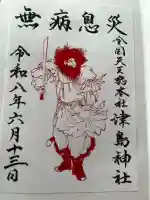 無病息災
全国天王総本社
津島神社
令和八年六月十三日